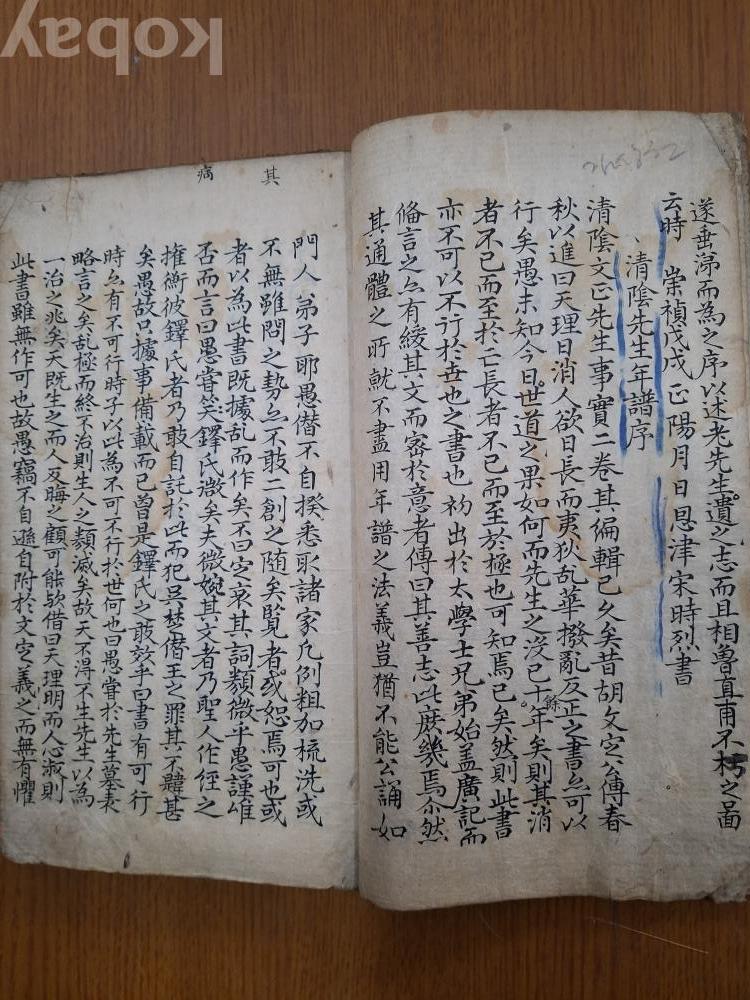 遂垂涕而為之序以述老先生遺之志而且相魯直甫不朽之啚
云時 崇禎戊戌正陽月日恩津宋時烈書
清陰先生年譜序
清陰文正先生事實二卷其編輯已久矣昔胡文定公傳春
秋以進曰天理日消人欲日長而夷狄乱華撥亂反正之書亦可以
行矣愚未知今日世道之果如何而先生之沒已十餘年矣則其消
者不已而至於亡長者不已而至於極也可知焉已矣然則此書
亦不可以不行於世也之書也初出於太學士兄弟始盖廣記而
俻言之亦有綬其文而密於意者傳曰其善志此庶幾焉尒然
其通體之所就不盡用年譜之法義豈猶不能公誦如
門人弟子耶愚僣不自揆悉取諸家凡例粗加梳洗或
不無雖問之勢亦不敢二創之随矣覽者或恕焉可也或
者以為此書既據乱而作矣不曰定哀其詞類微乎愚謹雄
否而言曰愚嘗笑鐸氏微矣夫微婉其文者乃聖人作經之
権衡彼鐸氏者乃敢自託於此而犯吳楚僣王之罪其不韙甚
矣愚故只據事備載而已曽是鐸氏之敢效乎曰書有可行
時亦有不可行時子以此為不可不行於世何也曰愚嘗於先生墓表
略言之矣乱極而終不治則生人之類滅矣故天不得不生先生以為
一治之兆矣天既生之而人反晦之顧可能欤借曰天理明而人心淑則
此書雖無作可也故愚竊不自遜自附於文定之義之而無有懼
其
病
kobay